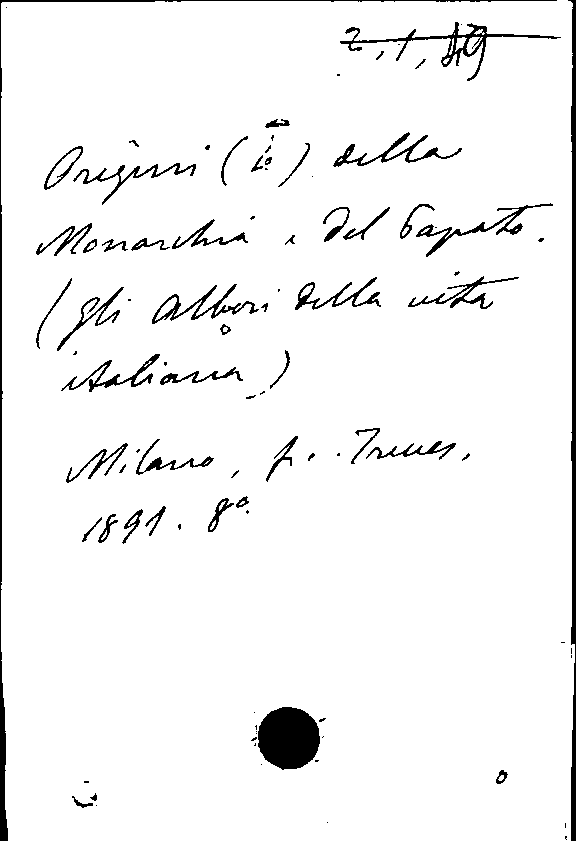 2, 1, 49
Origini (Le) della
Monarchia e del Papato.
(gli albori della vita
italiana)
Milano, f. Treves,
1891. 8º.